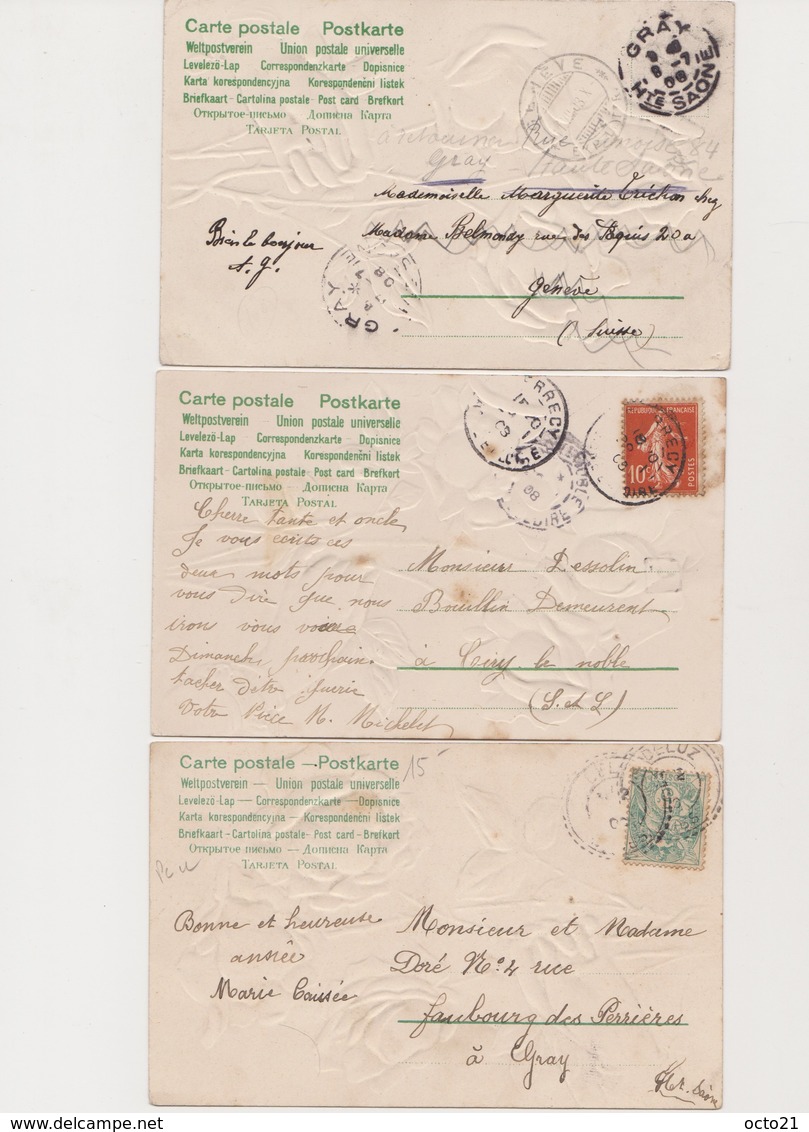 Carte postale Postkarte
Weltpostverein Union postale universelle
Levelező-Lap Correspondenzkarte Dopisnice
Karta korespondencyjna Korespondenční listek
Briefkaart - Cartolina postale - Post card Brefkort
Открытое письмо Дописна Карта
Tarjeta Postal
GRAY
08
HTE SAÔNE
rue 84
Gray Haute Saône
Mademoiselle Marguerite Tréchon chez
Madame Belmondy rue des Paquis 20a
Genève
(Suisse)
Bien le bonjour
A. G.
GRAY
08
Carte postale Postkarte
Weltpostverein Union postale universelle
Levelező-Lap Correspondenzkarte Dopisnice
Karta korespondencyjna Korespondenční listek
Briefkaart - Cartolina postale - Post card Brefkort
Открытое письмо Дописна Карта
Tarjeta Postal
REPUBLIQUE FRANÇAISE
10c
POSTES
Cherre tante et oncle
Je vous ecrits ces
deux mots pour
vous dire que nous
irons vous voir
Dimanche prochain.
tacher d'etre guerie
Votre Niece M. Michelet
Monsieur Dessolin
Bouillin Demeurent
à Ciry le noble
(S. et L)
Carte postale — Postkarte
Weltpostverein — Union postale universelle
Levelező-Lap — Correspondenzkarte — Dopisnice
Karta korespondencyjna — Korespondenční listek
Briefkaart - Cartolina postale - Post card - Brefkort
Открытое письмо — Дописна Карта
Tarjeta Postal
15
Bonne et heureuse
année
Marie Caissée
Monsieur et Madame
Doré No. 4 rue
faubourg des Perrières
à Gray
Hte. Saône
© octo21